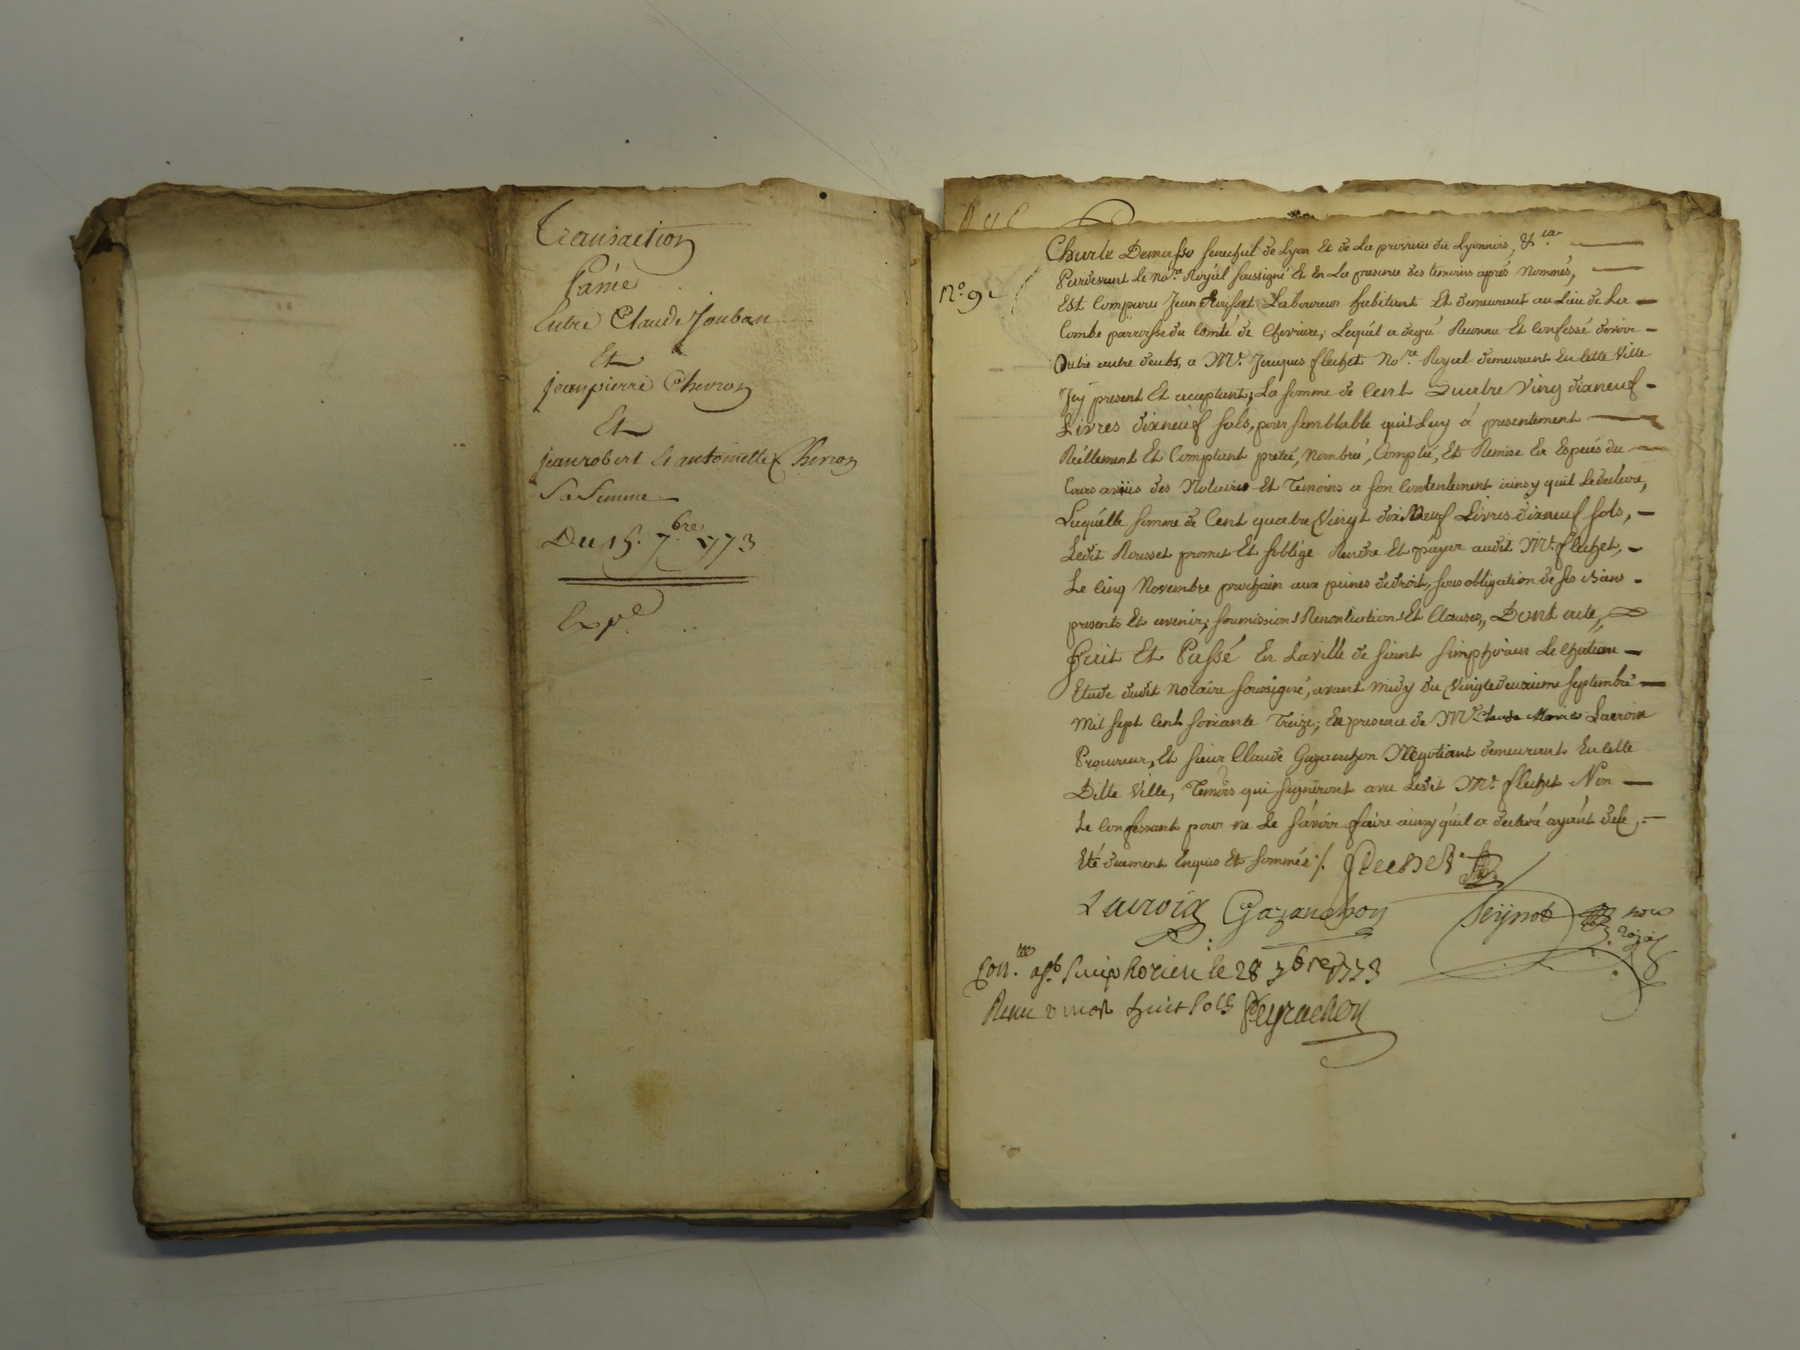 Transaction
Passée
Entre Claude Jouban
Et
jean pierre Chevron
Et
jean robert Et antoinette Chevron
Sa femme
Du 15. 7.bre 1773
Exp.é
N.º 9
Charle Demasso senechal de Lyon Et de La province du Lyonnois, &.ca
Pardevant Le no.re Royal soussigné Et En La presence des temoins aprés Nommés,
Est Comparu Jean Rousset Laboureur habitant Et demeurant au Lieu de La
Combe parroisse du Comté de Cheviere, Lequel a de gré Reconnu Et Confessé devoir
Outre autre deubs, a M.e Jacques flechet No.re Royal demeurant En Cette Ville
Icy present Et acceptant, La somme de Cent Quatre Ving dixneuf
Livres dixneuf sols, pour semblable qu'il Luy á presentement
Réellement Et Comptant preté, Nombré, Compté, Et Remise En Especes du
Cours a vües des Notaires Et Temoins a son Contentement ainsy quil Le declare,
Laquelle somme de Cent quatre Vingt dix Neuf Livres dixneuf sols,
Ledit Rousset promet Et soblige Rendre Et payer audit M.e flechet,
Le Cinq Novembre prochain aux peines de droit, sous obligation de ses Biens
presents Et avenir, soumissions Renontiations Et Clauses, Dont acte,
fait Et Passé En La ville de saint simphorien Le Chateau
Etude dudit notaire soussigné, avant midy du Vingtedeuxieme septembre
mil sept Cent soixante Treize; En presence de M.e Claude Marie Lacroix
Procureur, Et sieur Claude Gazanchon Negotiant demeurant En Cette
Ditte Ville, Temoins qui signeront avec Ledit M.e flechet Non
Le Confessant pour ne Le sávoir faire ainsy qu'il a declaré ayánt de Ce
Eté duement Enquis Et sommés ./. flechet
Lacroix Gazanchon Seijnot no.re
Royal
Con.lé a St. Simphorien le 28 7bre 1773
Reçu huit sols Peyrachon